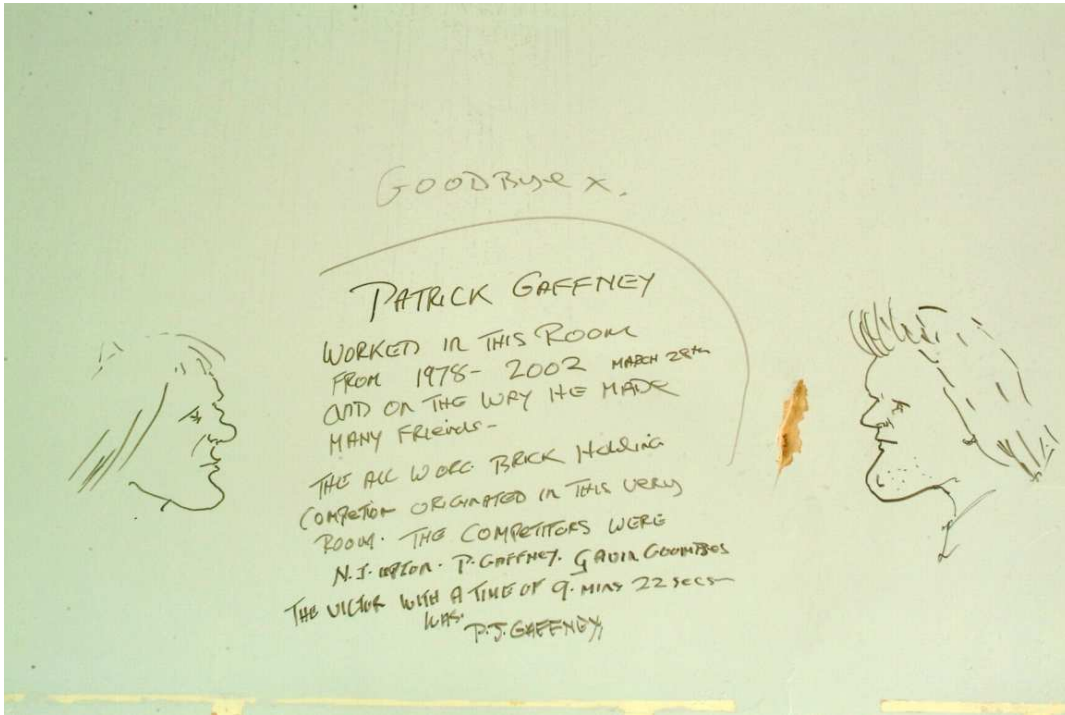 GOODBYE x.
PATRICK GAFFNEY
WORKED IN THIS ROOM
FROM 1978 - 2002 MARCH 28th
AND ON THE WAY HE MADE
MANY FRIENDS -
THE ALL WORL BRICK HOLDING
COMPETION ORIGINATED IN THIS VERY
ROOM. THE COMPETITORS WERE
N.J. P. GAFFNEY. GAVIN
THE VICTOR WITH A TIME OF 9. MINS 22 SECS
WAS.
P.J. GAFFNEY,